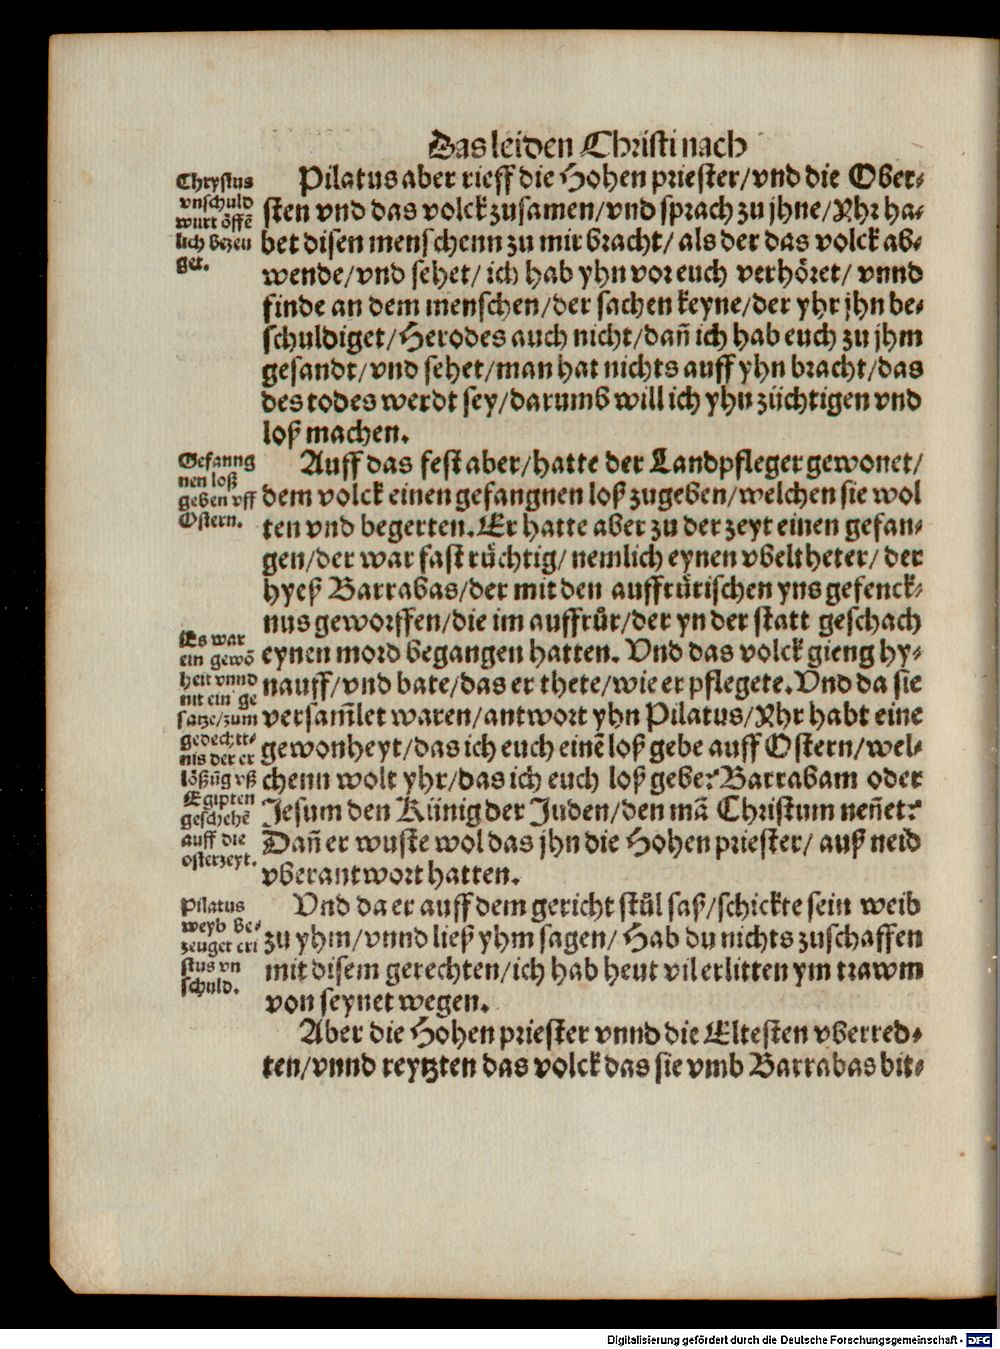 Das leiden Christi nach
Chrystus
vnschuld
wurt öffē
lich bezeu
get.
Pilatus aber rieff die Hohen priester/vnd die Ober⸗
sten vnd das volck zusamen/vnd sprach zu jhne/Yhr ha⸗
bet disen menschenn zu mir bracht/ als der das volck ab⸗
wende/vnd sehet/ ich hab yhn vor euch verhöret/ vnnd
finde an dem menschen/der sachen keyne/der yhr jhn be⸗
schuldiget/Herodes auch nicht/dañ ich hab euch zu jhm
gesandt/vnd sehet/man hat nichts auff yhn bracht/das
des todes werdt sey/darumb will ich yhn züchtigen vnd
loß machen.
Gefanng
nen loß
geben vff
Ostern.
Auff das fest aber/hatte der Landpfleger gewonet/
dem volck einen gefangnen loß zugeben/welchen sie wol
ten vnd begerten. Er hatte aber zu der zeyt einen gefan⸗
gen/der war fast rüchtig/ nemlich eynen vbeltheter/ der
hyeß Barrabas/der mit den auffrürischen yns gefenck⸗
nus geworffen/die im auffrůr/der yn der statt geschach
eynen mord begangen hatten. Vnd das volck gieng hy⸗
nauff/vnd bate/das er thete/wie er pflegete. Vnd da sie
versam̃let waren/antwort yhn Pilatus/Yhr habt eine
gewonheyt/das ich euch einē loß gebe auff Ostern/wel⸗
chenn wolt yhr/das ich euch loß gebe? Barrabam oder
Jesum den Künig der Juden/den mā Christum neñet?
Dañ er wuste wol das jhn die Hohen priester/ auß neid
vberantwort hatten.
Es war
ein gewō
heit vnnd
nit ein ge
satze/zum
gedechtt⸗
nis der er
lößūg vß
Egipten
geschehē
auff die
osterzeyt.
Pilatus
weyb be⸗
zeuget cri
stus vn
schuld.
Vnd da er auff dem gericht stůl saß/schickte sein weib
zu yhm/vnnd ließ yhm sagen/ Hab du nichts zuschaffen
mit disem gerechten/ich hab heut vil erlitten ym trawm
von seynet wegen.
Aber die Hohen priester vnnd die Eltesten vberred⸗
ten/vnnd reytzten das volck das sie vmb Barrabas bit⸗
Digitalisierung gefördert durch die Deutsche Forschungsgemeinschaft - DFG